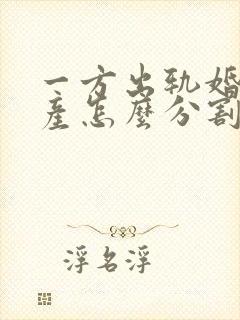 一方出轨婚
产怎麼分割
浮名浮